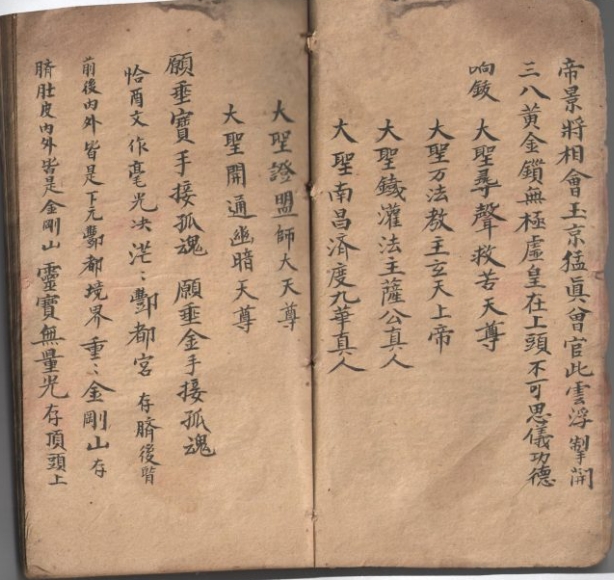 帝景將相會玉京猛真曾官此雲浮掣開
三八黃金鎖無極虛皇在上頭 不可思儀功德
响鈸 大聖尋聲救苦天尊
大聖万法教主玄天上帝
大聖鐵灌法主薩公真人
大聖南昌済度九華真人
大聖證盟師大天尊
大聖開通幽暗天尊
願垂寶手接孤魂 願垂金手接孤魂
恰酉文 作毫光决 茫〻酆都宮 存臍後背
前後内外皆是下元酆都境界 重〻金剛山 存
臍肚皮内外皆是金剛山 靈寶無量光 存頂頭上